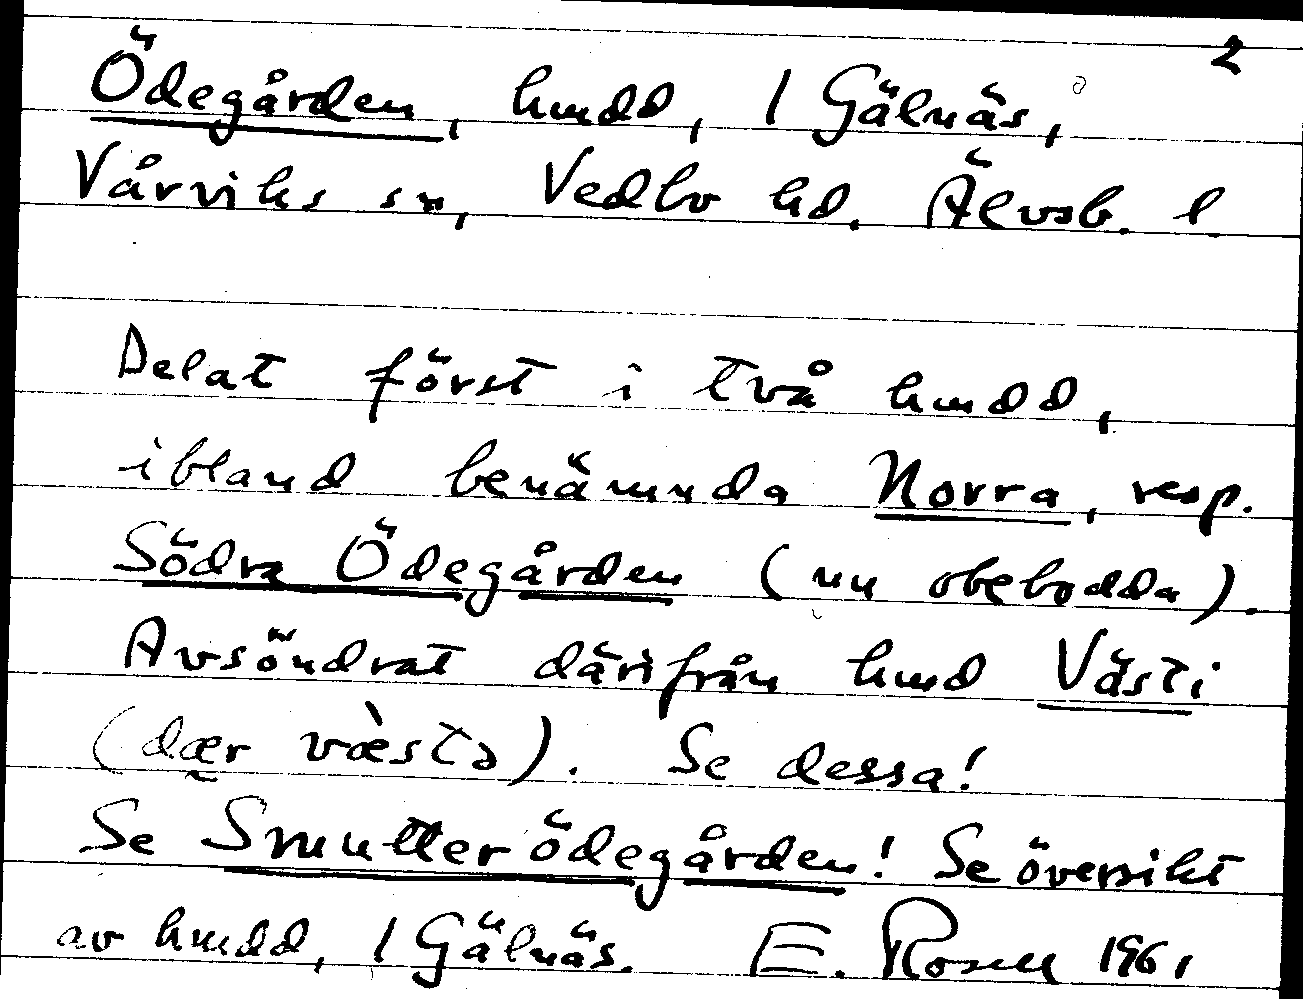 2
Ödegården, hmdd, 1 Gälnäs,
Vårviks sn, Vedbo hd. Älvsb. l.
Delat först i två hmdd,
ibland benämnda Norra, resp.
Södra Ödegården (nu obebodda).
Avsöndrat därifrån hmd Västi
(dær væ̀stə). Se dessa!
Se Smutterödegården! Se översikt
av hmdd, 1 Gälnäs. E. Rosell 1961